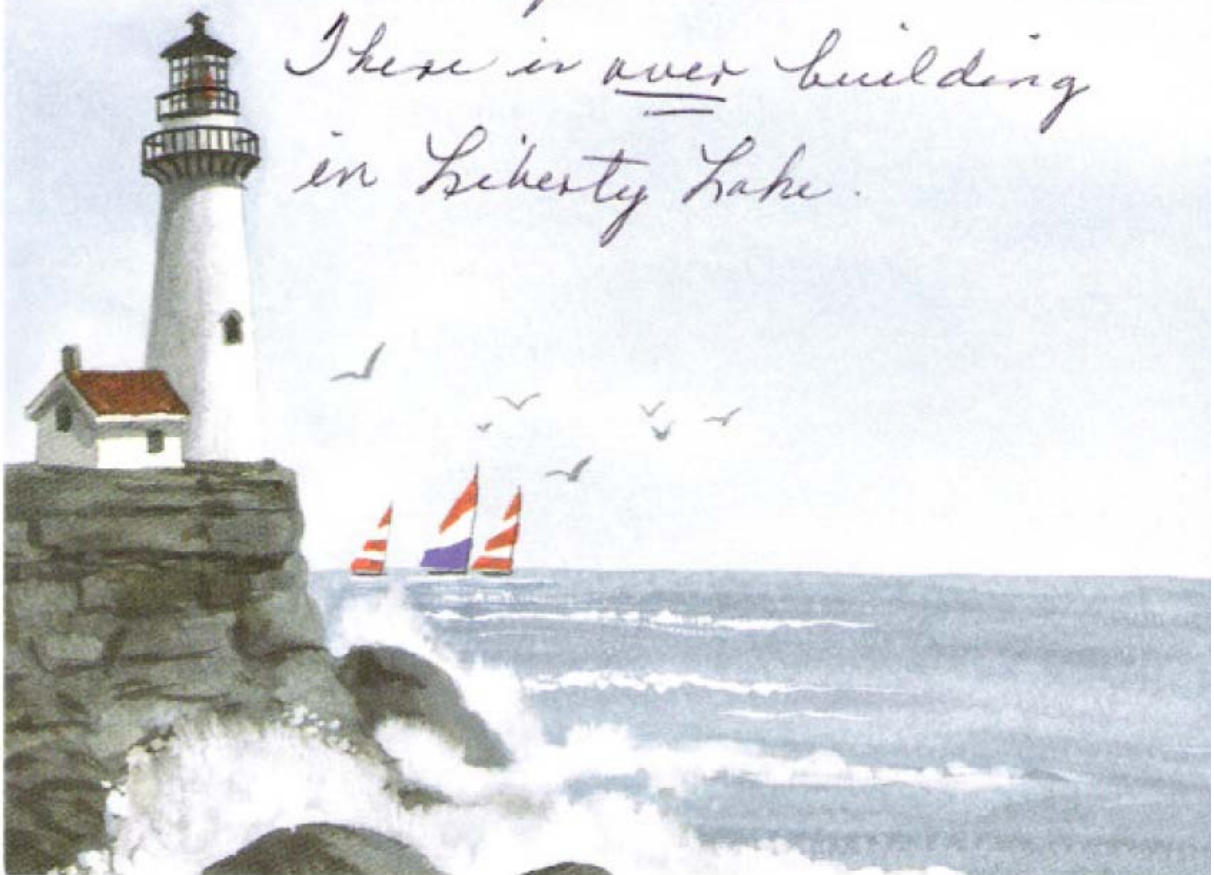 There is over building
in Liberty Lake.